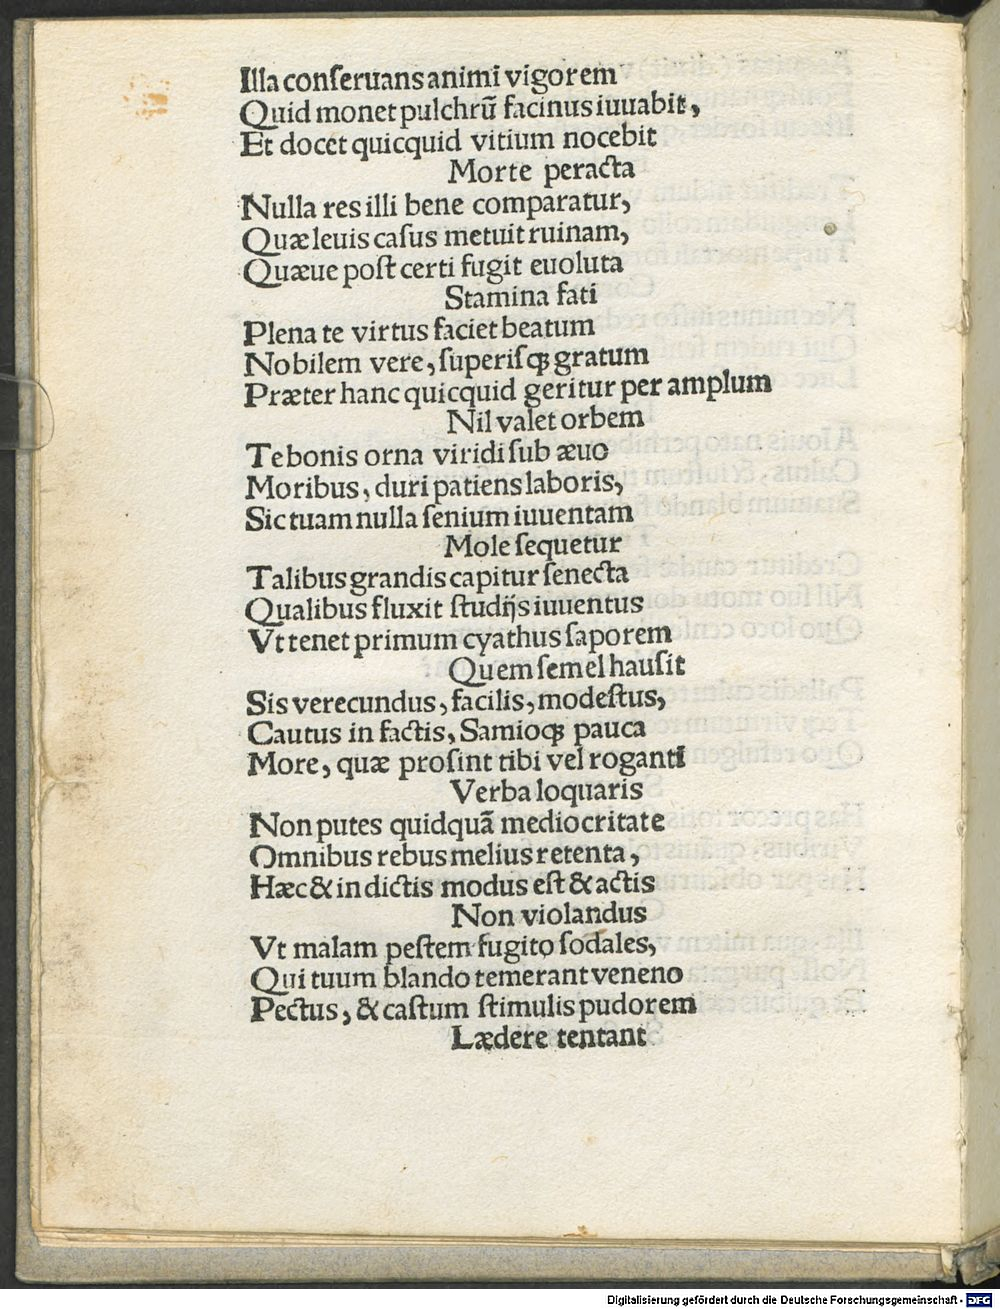 Illa conſeruans animi vigorem
Quid monet pulchrū facinus iuuabit,
Et docet quicquid vitium nocebit
Morte peracta
Nulla res illi bene comparatur,
Quæ leuis caſus metuit ruinam,
Quæue poſt certi fugit euoluta
Stamina fati
Plena te virtus faciet beatum
Nobilem vere, ſuperiſqꝫ gratum
Præter hanc quicquid geritur per amplum
Nil valet orbem
Te bonis orna viridi ſub æuo
Moribus, duri patiens laboris,
Sic tuam nulla ſenium iuuentam
Mole ſequetur
Talibus grandis capitur ſenecta
Qualibus fluxit ſtudijs iuuentus
Vt tenet primum cyathus ſaporem
Quem ſemel hauſit
Sis verecundus, facilis, modeſtus,
Cautus in factis, Samioqꝫ pauca
More, quæ proſint tibi vel roganti
Verba loquaris
Non putes quidquā mediocritate
Omnibus rebus melius retenta,
Hæc & in dictis modus eſt & actis
Non violandus
Vt malam peſtem fugito ſodales,
Qui tuum blando temerant veneno
Pectus, & caſtum ſtimulis pudorem
Lædere tentant
Digitalisierung gefördert durch die Deutsche Forschungsgemeinschaft - DFG